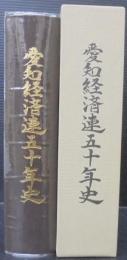 愛知経済連五十年史
愛知経済連五十年史